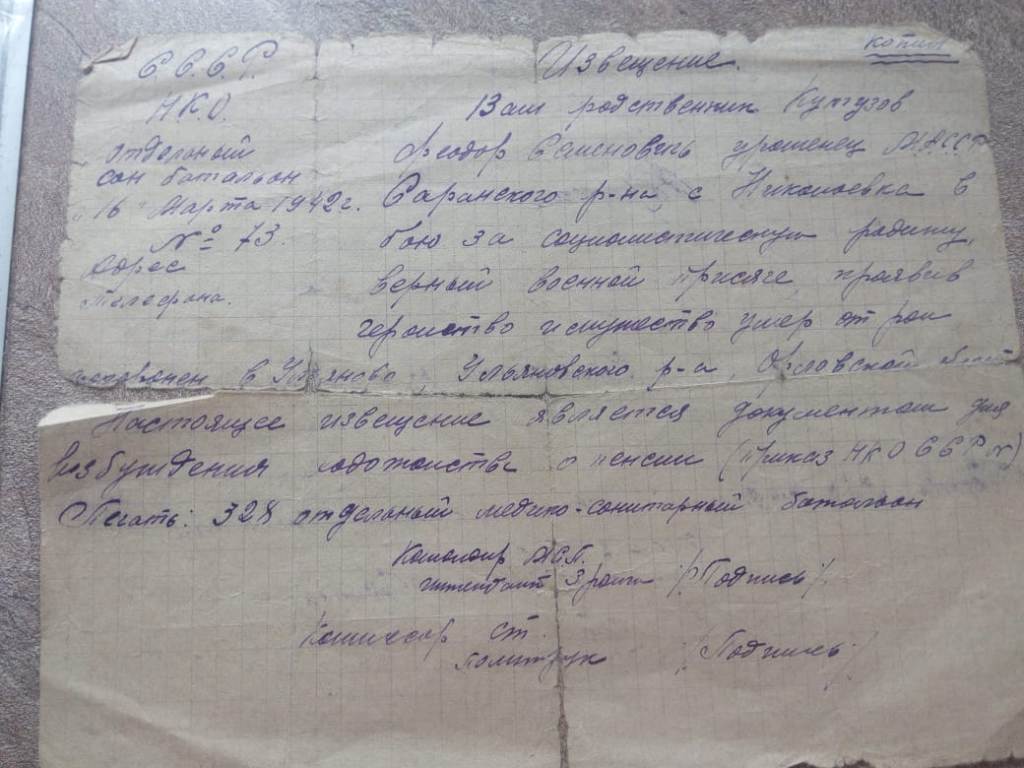 копия
С.С.С.Р.
Н.К.О.
отдельный
сан батальон
16 Марта 1942 г.
№ 73.
Адрес
телефона.
Извещение.
Ваш родственник Кутузов
Феодор Семенович урошенец М.А.С.С.Р
Саранского р-на, с Николаевка в
бою за социалистическую родину,
верный военной присяге, проявив
героиство и мужество умер от ран
похоронен в Ульяново, Ульяновского р-а, Орловской област
Настоящее извещение является документом для
возбуждения ходотоиства о пенсии (приказ НКО ССР №)
Печать: 328 отдельный медико-санитарный батальон
интендант 3 ранга /Подпись/.
Комиссар ст.
политрук /Подпись/